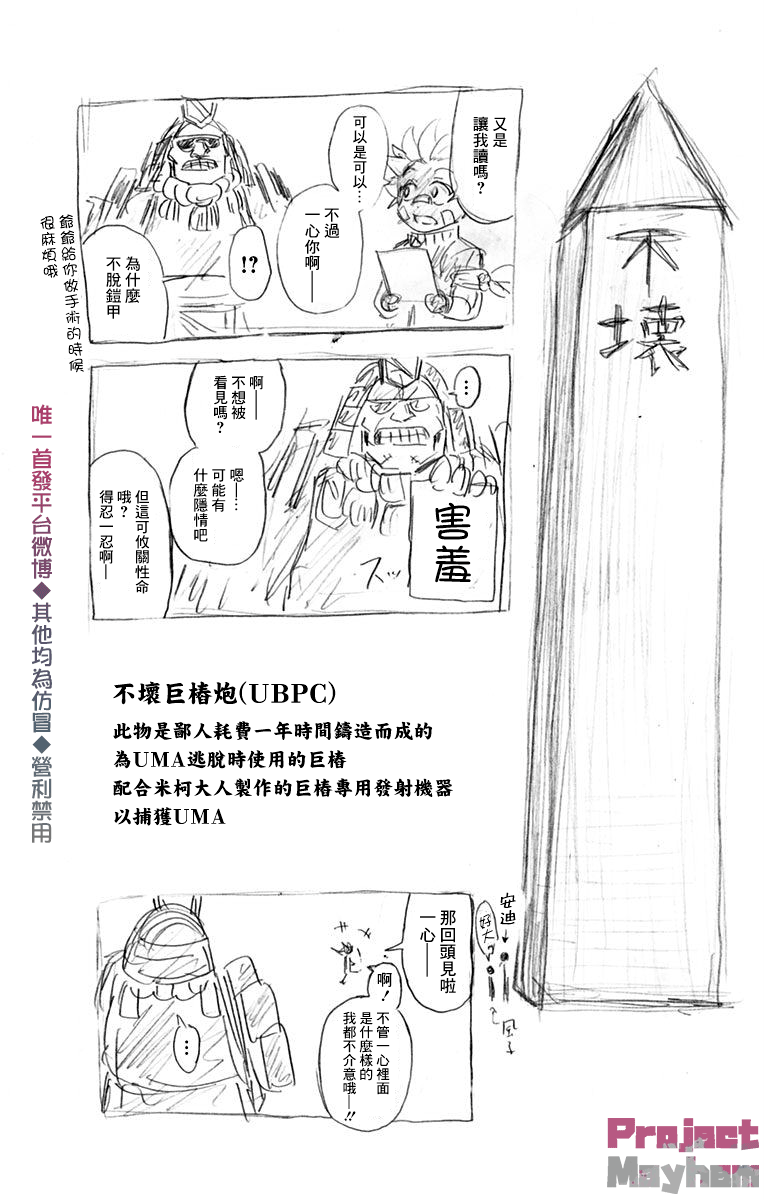 又是
讓我讀嗎?
可以是可以…
不過
一心你啊—
!?
為什麼
不脫鎧甲
爺爺給你做手術的時候
很麻煩哦
不壞
…
啊—
不想被
看見嗎?
嗯—…
可能有
什麼隱情吧
但這可攸關性命
哦?
得忍一忍啊—
害羞
スッ
唯一首發平台微博◆其他均為仿冒◆營利禁用
不壞巨樁炮(UBPC)
此物是鄙人耗費一年時間鑄造而成的
為UMA逃脫時使用的巨樁
配合米柯大人製作的巨樁專用發射機器
以捕獲UMA
安迪
好大
風子
那回頭見啦
一心—
啊!
不管一心裡面
是什麼樣的
我都不介意哦—!!
…
Project
Mayhem